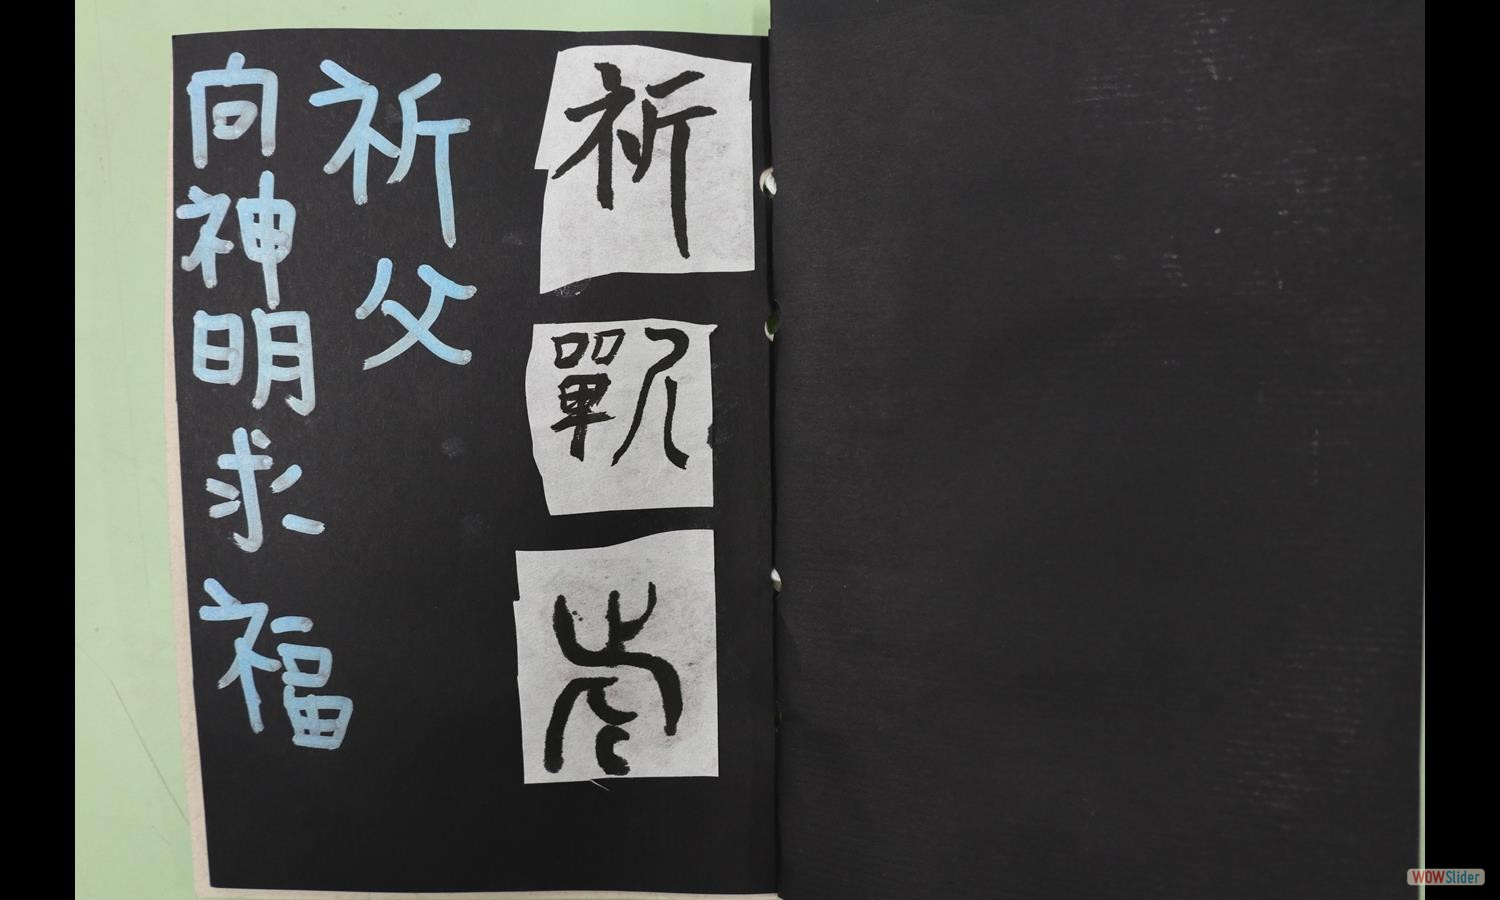 祈
祈父
向神明求福
WOWSlider